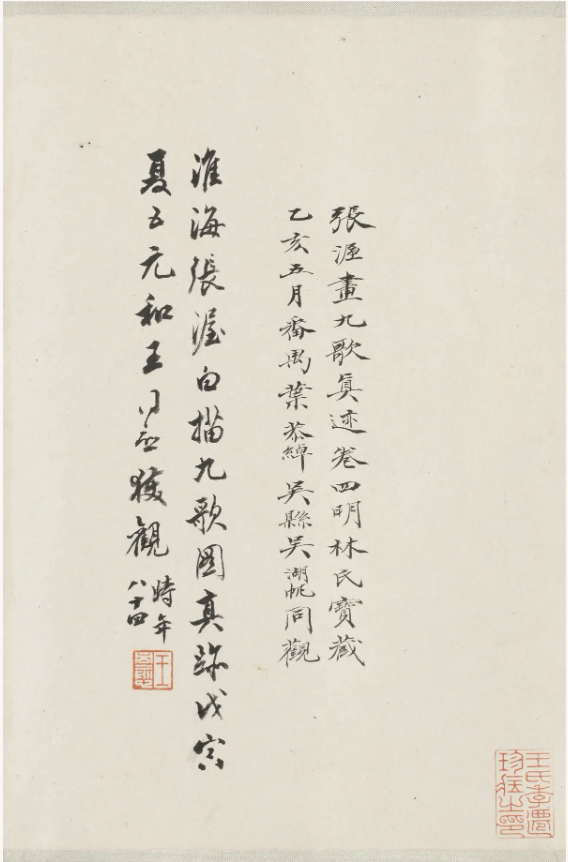 張渥畫九歌真迹卷四明林氏寶藏
乙亥五月番禺葉恭綽吳縣吳湖帆同觀
淮海張渥白描九歌圖真跡戊寅
夏五元和王同愈獲觀
時年
八十四
王氏季遷
珍藏之印